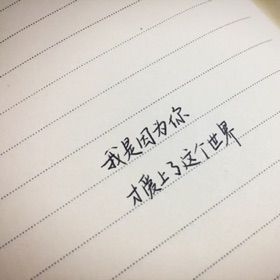 我是因为你
才爱上了这个世界